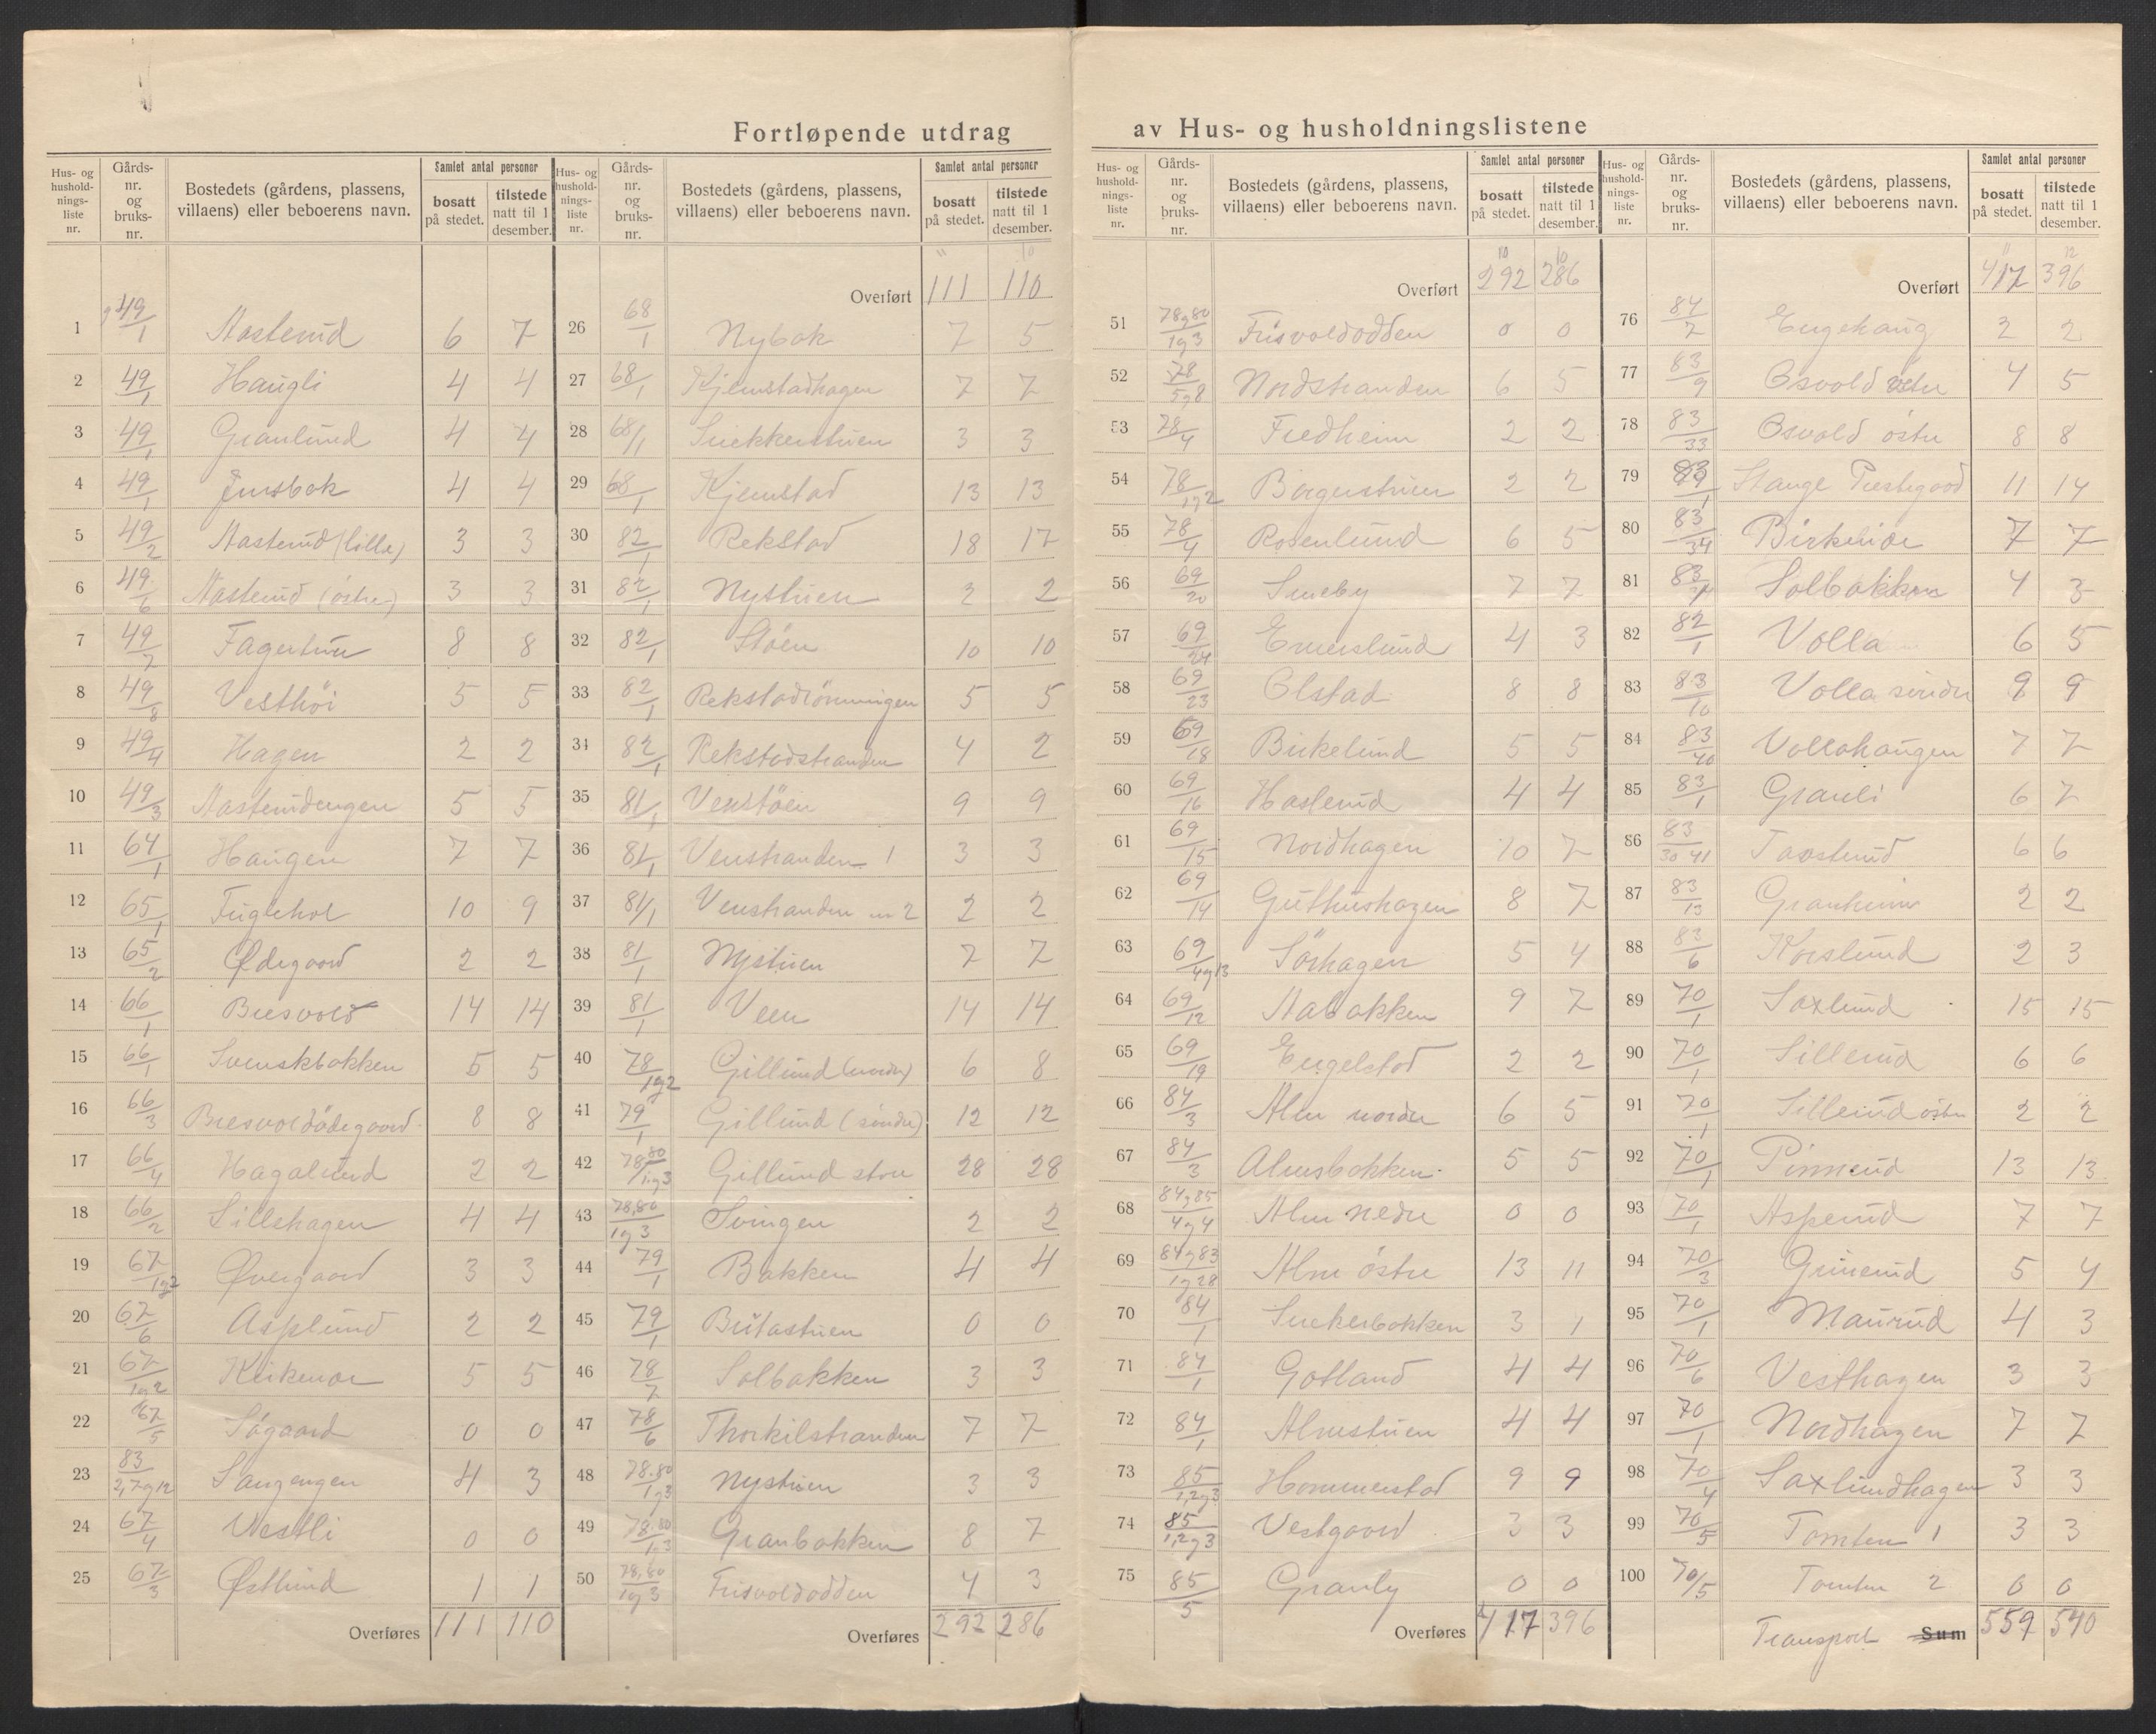 Fortløpende utdrag av Hus- og husholdningslistene
Hus- og hushold-nings-liste nr. Gårds-nr. og bruks-nr. Bostedets (gårdens, plassens, villaens) eller beboerens navn. Samlet antal personer bosatt på stedet. tilstede natt til 1 desember.
1 49/1 Aasterud 6 7
2 49/1 Haugli 4 4
3 49/1 Granlund 4 4
4 49/1 Jensbak 4 4
5 49/2 Aasterud (lille) 3 3
6 49/6 Aasterud (östre) 3 3
7 49/7 8 8
8 49/8 Vesthöi 5 5
9 49/4 Hagen 2 2
10 49/3 Aasterudengen 5 5
11 64/1 Haugen 7 7
12 65/1 Fuglehol 10 9
13 65/2 Ødegaard 2 2
14 66/1 Bresvold 14 14
15 66/1 Svenskbakken 5 5
16 66/3 Bresvoldödegaard 8 8
17 66/4 Hagalund 2 2
18 66/2 Lillehagen 4 4
19 67/1og2 Øvergaard 3 3
20 67/6 Asplund 2 2
21 67/1og2 5 5
22 67/5 Sögaard 0 0
23 83/2,7og12 Sangengen 4 3
24 67/4 Vestli 0 0
25 67/3 Østlund 1 1
Overføres 111 110
Hus- og hushold-nings-liste nr. Gårds-nr. og bruks-nr. Bostedets (gårdens, plassens, villaens) eller beboerens navn. Samlet antal personer bosatt på stedet. tilstede natt til 1 desember.
Overført 111 110
26 68/1 Nybak 7 5
27 68/1 Kjemstadhagen 7 7
28 68/1 Snekkerstuen 3 3
29 68/1 Kjemstad 13 13
30 82/1 Rekstad 18 17
31 82/1 Nystuen 2 2
32 82/1 Stöen 10 10
33 82/1 Rekstadrönningen 5 5
34 82/1 Rekstadstranden 4 2
35 81/1 Venstöen 9 9
36 81/1 Venstranden 1 3 3
37 81/1 Venstranden nr 2 2 2
38 81/1 Nystuen 7 7
39 81/1 Veen 14 14
40 78/1og2 Gillund (nordre) 6 8
41 79/1 Gillund (söndre) 12 12
42 78,80/1og3 Gillund store 28 28
43 78,80/1og3 Svingen 2 2
44 79/1 Bakken 4 4
45 79/1 Britastuen 0 0
46 78/7 Solbakken 3 3
47 78/6 Thorkilstranden 7 7
48 78.80/1og3 Nystuen 3 3
49 78.80/1og3 Granbakken 8 7
50 78,80/1og3 Frisvoldodden 4 3
Overføres 292 286
Hus- og hushold-nings-liste nr. Gårds-nr. og bruks-nr. Bostedets (gårdens, plassens, villaens) eller beboerens navn. Samlet antal personer bosatt på stedet. tilstede natt til 1 desember.
Overført 292 286
51 78og80/1og3 Frisvoldodden 0 0
52 78/5og8 Nordstranden 6 5
53 78/4 Fredheim 2 2
54 78/1og2 Börgerstuen 2 2
55 78/4 Rosenlund 6 5
56 69/20 Smeby 7 7
57 69/24 Enerslund 4 3
58 69/23 Olstad 8 8
59 69/18 Birkelund 5 5
60 69/16 Haslerud 4 4
61 69/15 Nordhagen 10 7
62 69/14 Guthushagen 8 7
63 69/4og13 Sörhagen 5 4
64 69/12 Aabakken 9 7
65 69/19 Engelstad 2 2
66 84/3 Alm nordre 6 5
67 84/3 Almsbakken 5 5
68 84og85/4og4 Alm nedre 0 0
69 84og83/1og28 Alm östre 13 11
70 84/1 Snekerbakken 3 1
71 84/1 Gotland 4 4
72 84/1 Almstuen 4 4
73 85/1,2og3 Hommerstad 9 9
74 85/1,2og3 Vestgaard 3 3
75 85/5 Granly 0 0
Overføres 417 396
Hus- og hushold-nings-liste nr. Gårds-nr. og bruks-nr. Bostedets (gårdens, plassens, villaens) eller beboerens navn. Samlet antal personer bosatt på stedet. tilstede natt til 1 desember.
Overført 417 396
76 84/2 Engehaug 2 2
77 83/9 Osvold vestre 4 5
78 83/33 Osvold östre 8 8
79 Stange Prestegaard 11 14
80 83/34 Birkelior 7 7
81 83 Solbakken 4 3
82 82/1 Volla 6 5
83 83/10 Volla söndre 9 9
84 83/40 Vollahaugen 7 7
85 83/1 Granli 6 7
86 83/30 41 Taasterud 6 6
87 83/13 Granheim 2 2
88 83/6 Korslund 2 3
89 70/1 Saxlund 15 15
90 70/1 Sillerud 6 6
91 70/1 Sillerud östre 2 2
92 70/1 Pinnerud 13 13
93 70/1 Asperud 7 7
94 70/3 Grinerud 5 4
95 70/1 Maurud 4 3
96 70/6 Vesthagen 3 3
97 70/1 Nordhagen 7 7
98 70/4 Saxlundhagen 3 3
99 70/5 Tomten 1 3 3
100 70/5 Tomten 2 0 0
Transport Sum 559 540